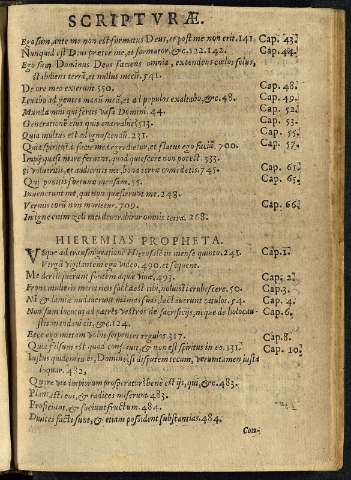 SCRIPTVRÆ.
Ego sum, ante me non est formatus Deus, et post me non erit. 141. Cap. 43.
Nunquid est Deus præter me, et formator, &c. 122. 142. Cap. 44.
Ego sum Dominus Deus faciens omnia, extendens cœlos solus,
stabiliens terrã, et nullus mecũ, 541.
De ore meo exierunt 550. Cap. 48.
Levabo ad gentes manũ meã, et ad populos exaltabo, &c. 48. Cap. 49.
Mundamini qui fertis vasa Domini. 44. Cap. 52.
Generationẽ eius quis enarrabit? 513. Cap. 53.
Quia multus est ad ignoscendũ. 231. Cap. 55.
Quia spiritꝰ à facie mea egredietur, et flatus ego faciã. 700. Cap. 57.
Impij quasi mare fervens, quod quiescere non potest. 333.
Si volueritis, et audieritis me, bona terræ comedetis 745. Cap. 61.
Qui ponitis fortunæ mensam, 35. Cap. 65.
Invenerunt me, qui non quæsierunt me. 248.
Vermis eorũ non morietur. 709. Cap. 66.
In igne enim zeli mei devorabitur omnis terra. 268.
HIEREMIAS PROPHETA.
Vsque ad transmigrationẽ Hierusalẽ in mense quinto. 245. Cap. 1.
Virgã vigilantem ego video. 490. et sequent.
Me dereliquerunt fontem aquæ vivæ, 493. Cap. 2.
Frons mulieris meretricis facta est tibi, noluisti erubescere. 50. Cap. 3.
Cap. 4.
Non sum locutus ad patres vestros de sacrificijs, neque de holocau- Cap. 6.
stis mandavi eis, &c. 124.
Ecce ego mittam vobis serpentes regulos 317. Cap. 8.
Quia falsum est quod conflavit, & non est spiritus in eo. 131. Cap. 10.
Iustus quidem tu es, Domine, si disputem tecum, verumtamen iusta
loquar. 482,
Quare via impiorum prosperatur? bene est ijs, qui, &c. 483.
Plantasti eos, & radices miserunt. 483.
Proficiunt, & faciunt fructum. 484.
Divites facti sunt, & etiam possident substantias. 484.
Con-